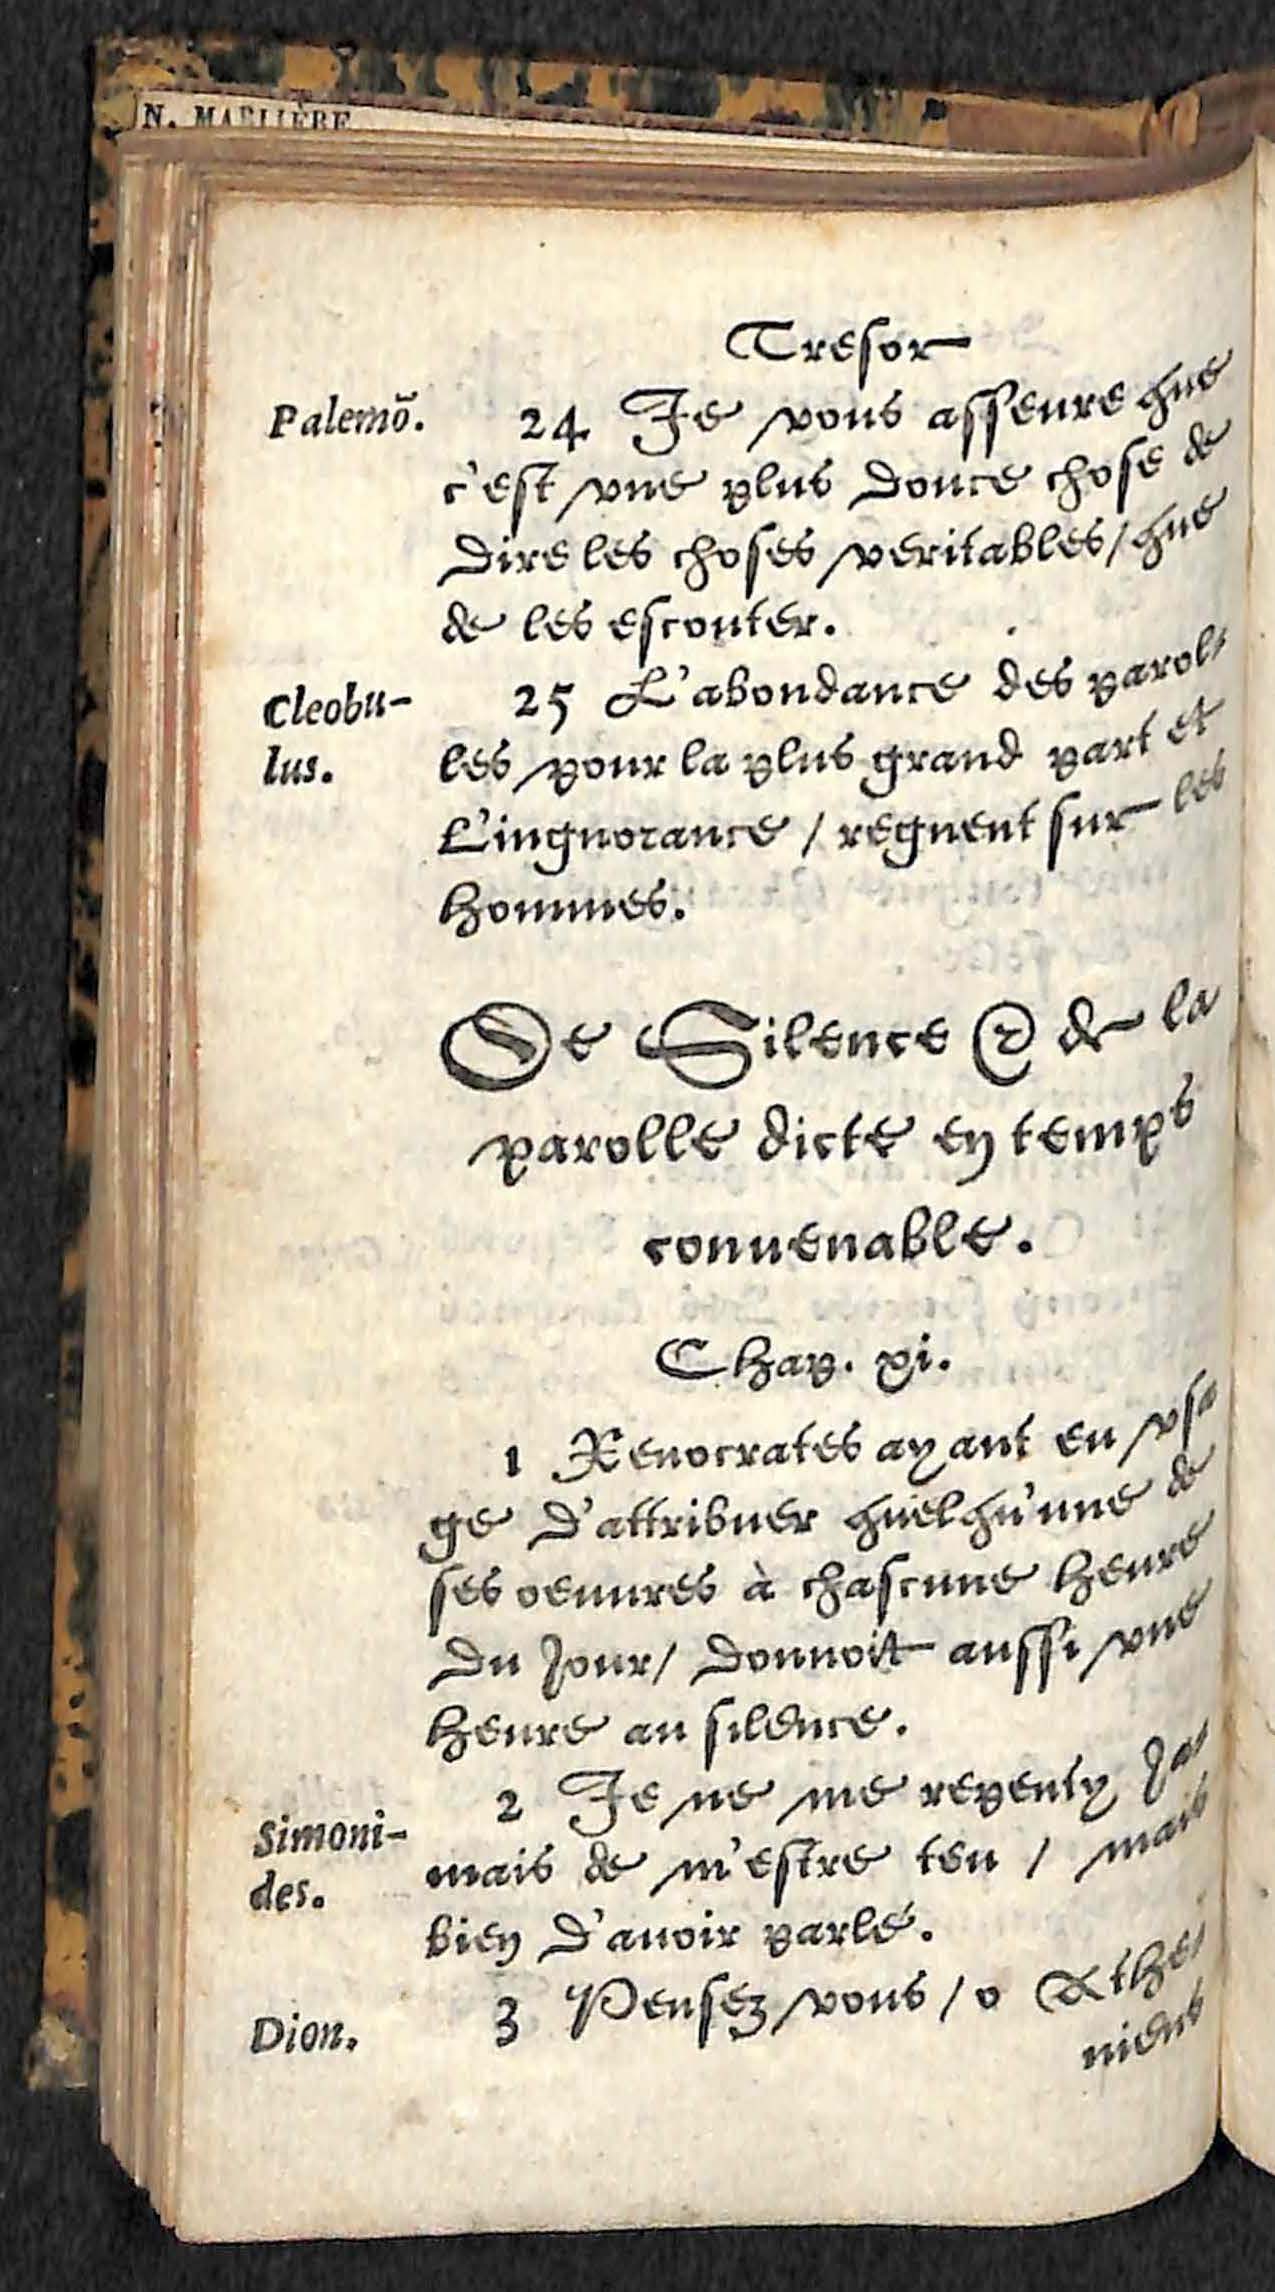 N. MARLIÈRE
Tresor
Palemõ.
24 Je vous asseure que
c'est vne plus douce chose de
dire les choses veritables / que
de les escouter.
Cleobu-
lus.
25 L'abondance des parol-
les pour la plus grand part et
L'ingnorance / regnent sur les
hommes.
De Silence & de la
parolle dicte en temps
conuenable.
Chap. xi.
1 Xenocrates ayant en vsa
ge d'attribuer quelqu'une de
ses oeuures à chascune heure
du Jour / donnoit aussi vne
heure au silence.
Simoni-
des.
2 Je ne me repenty Ja-
mais de m'estre teu / mais
bien d'auoir parlé.
Dion.
3 Pensez vous / o Athe-
niens